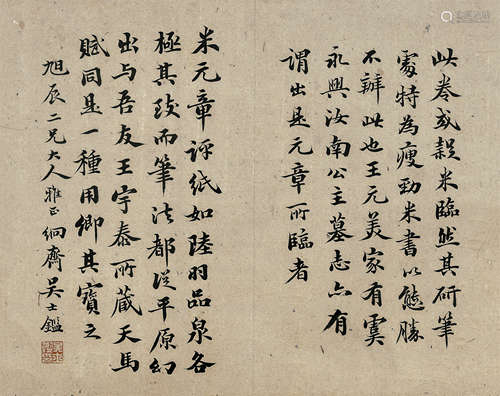 此卷或疑米臨然其研筆
處特為瘦勁米書以態勝
不辦此也王元美家有虞
永興汝南公主墓志亦有
謂出是元章所臨者
米元章評紙如陸羽品泉各
極其致而筆法都從平原幻
出与吾友王宇泰所藏天馬
賦同是一種用卿其寶之
旭辰二兄大人雅正絅齋吳士鑑